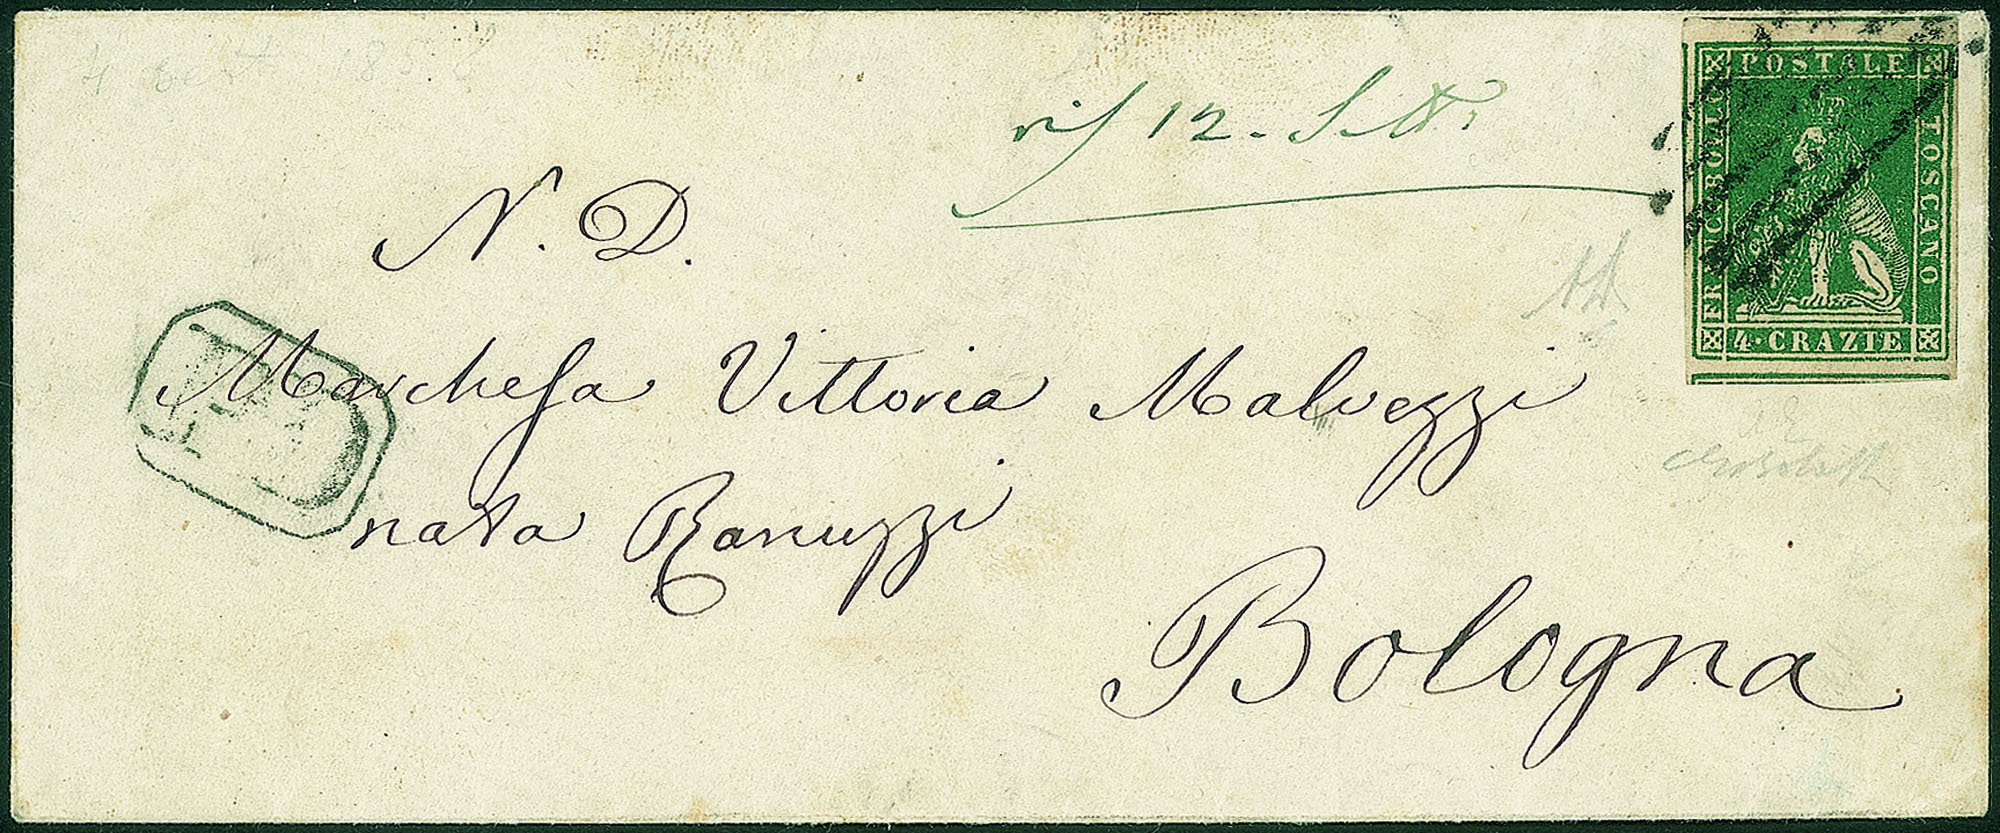 4 sett. 1858
ris/ 12. Sett.
POSTALE
FRANCOBOLLO
TOSCANO
4·CRAZIE
N. D.
Marchesa Vittoria Malvezzi
nata Ranuzzi
Bologna